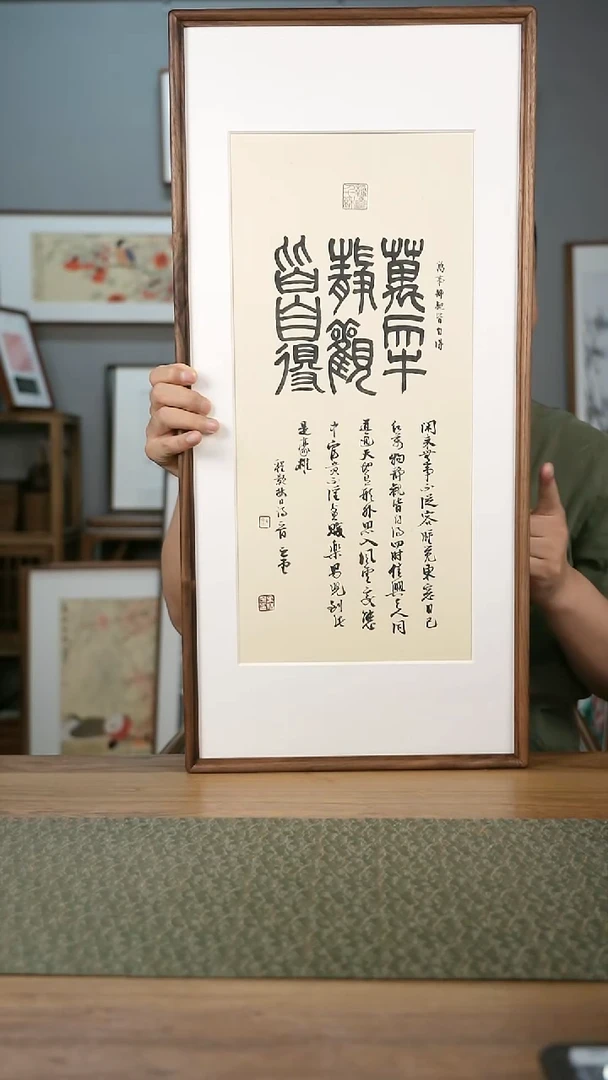 萬事
靜觀
皆自得
萬事靜觀皆自得
闲来無事不從容睡覺東窓日已
红萬物靜觀皆自得四时佳興与人同
道通天地有形外思入風雲变態
中富貴不淫貧賤樂男児到此
是豪雄
程颢秋日